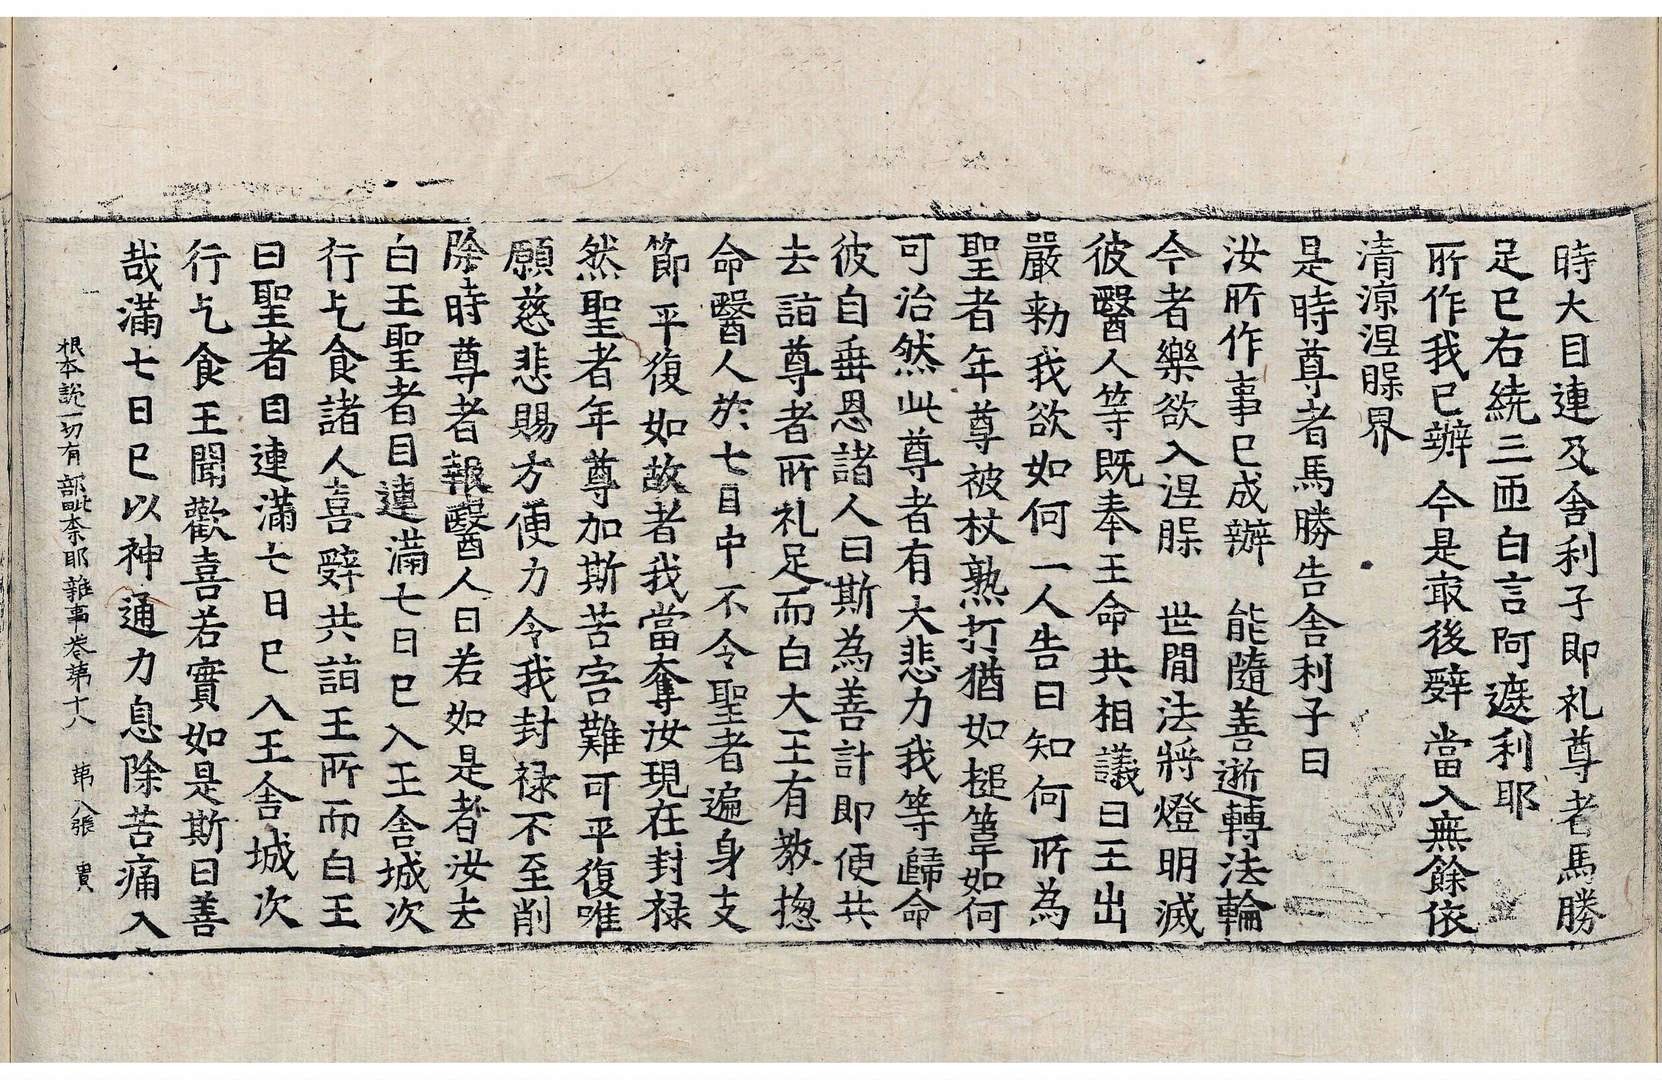 時大目連及舍利子即礼尊者馬勝
足已右繞三匝白言阿遮利耶
所作我已辦 今是㝡後辝 當入無餘依
清涼涅槃界
是時尊者馬勝告舍利子曰
汝所作事已成辦 能隨善逝轉法輪
今者樂欲入涅槃 世間法將燈明滅
彼醫人等既奉王命共相議曰王出
嚴勑我欲如何一人告曰知何所為
聖者年尊被杖熟打猶如搥䇲如何
可治然此尊者有大悲力我等歸命
彼自垂恩諸人曰斯為善計即便共
去詣尊者所礼足而白大王有教揔
命醫人於七日中不令聖者遍身支
節平復如故者我當奪汝現在封禄
然聖者年尊加斯苦害難可平復唯
願慈悲賜方便力令我封禄不至削
除時尊者報醫人曰若如是者汝去
白王聖者目連滿七日已入王舍城次
行乞食諸人喜辝共詣王所而白王
曰聖者目連滿七日已入王舍城次
行乞食王聞歡喜若實如是斯曰善
哉滿七日已以神通力息除苦痛入
根本說一切有部毗奈耶雜事卷第十八 第八張 貴